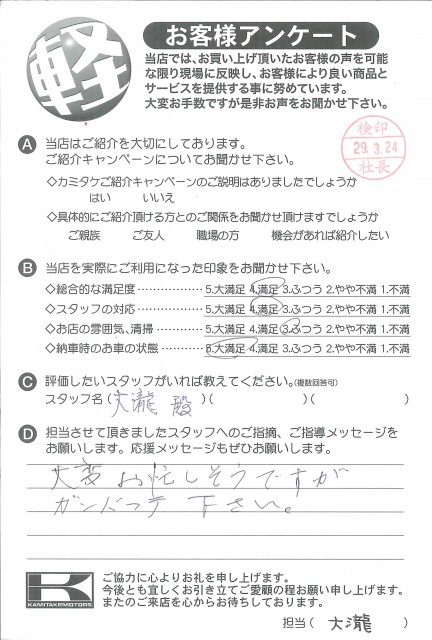 軽
お客様アンケート
当店では、お買い上げ頂いたお客様の声を可能
な限り現場に反映し、お客様により良い商品と
サービスを提供する事に努めています。
大変お手数ですが是非お声をお聞かせ下さい。
検印
29.3.24
社長
A 当店はご紹介を大切にしております。
ご紹介キャンペーンについてお聞かせ下さい。
◇カミタケご紹介キャンペーンのご説明はありましたでしょうか
はい いいえ
◇具体的にご紹介頂ける方とのご関係をお聞かせ頂けますでしょうか
ご親族 ご友人 職場の方 機会があれば紹介したい
B 当店を実際にご利用になった印象をお聞かせ下さい。
◇総合的な満足度……………… 5.大満足 4.満足 3.ふつう 2.やや不満 1.不満
◇スタッフの対応……………… 5.大満足 4.満足 3.ふつう 2.やや不満 1.不満
◇お店の雰囲気、清掃………… 5.大満足 4.満足 3.ふつう 2.やや不満 1.不満
◇納車時のお車の状態………… 5.大満足 4.満足 3.ふつう 2.やや不満 1.不満
C 評価したいスタッフがいれば教えてください。(複数回答可)
スタッフ名( 大瀧 殿 )( )( )
D 担当させて頂きましたスタッフへのご指摘、ご指導メッセージを
お願いします。応援メッセージもぜひお願いします。
大変お忙しそうですが
ガンバッテ 下さい。
K
KAMITAKEMOTORS
ご協力に心よりお礼を申し上げます。
今後とも宜しくお引き立てご愛顧の程お願い申し上げます。
またのご来店を心からお待ちしております。
担当( 大瀧 )